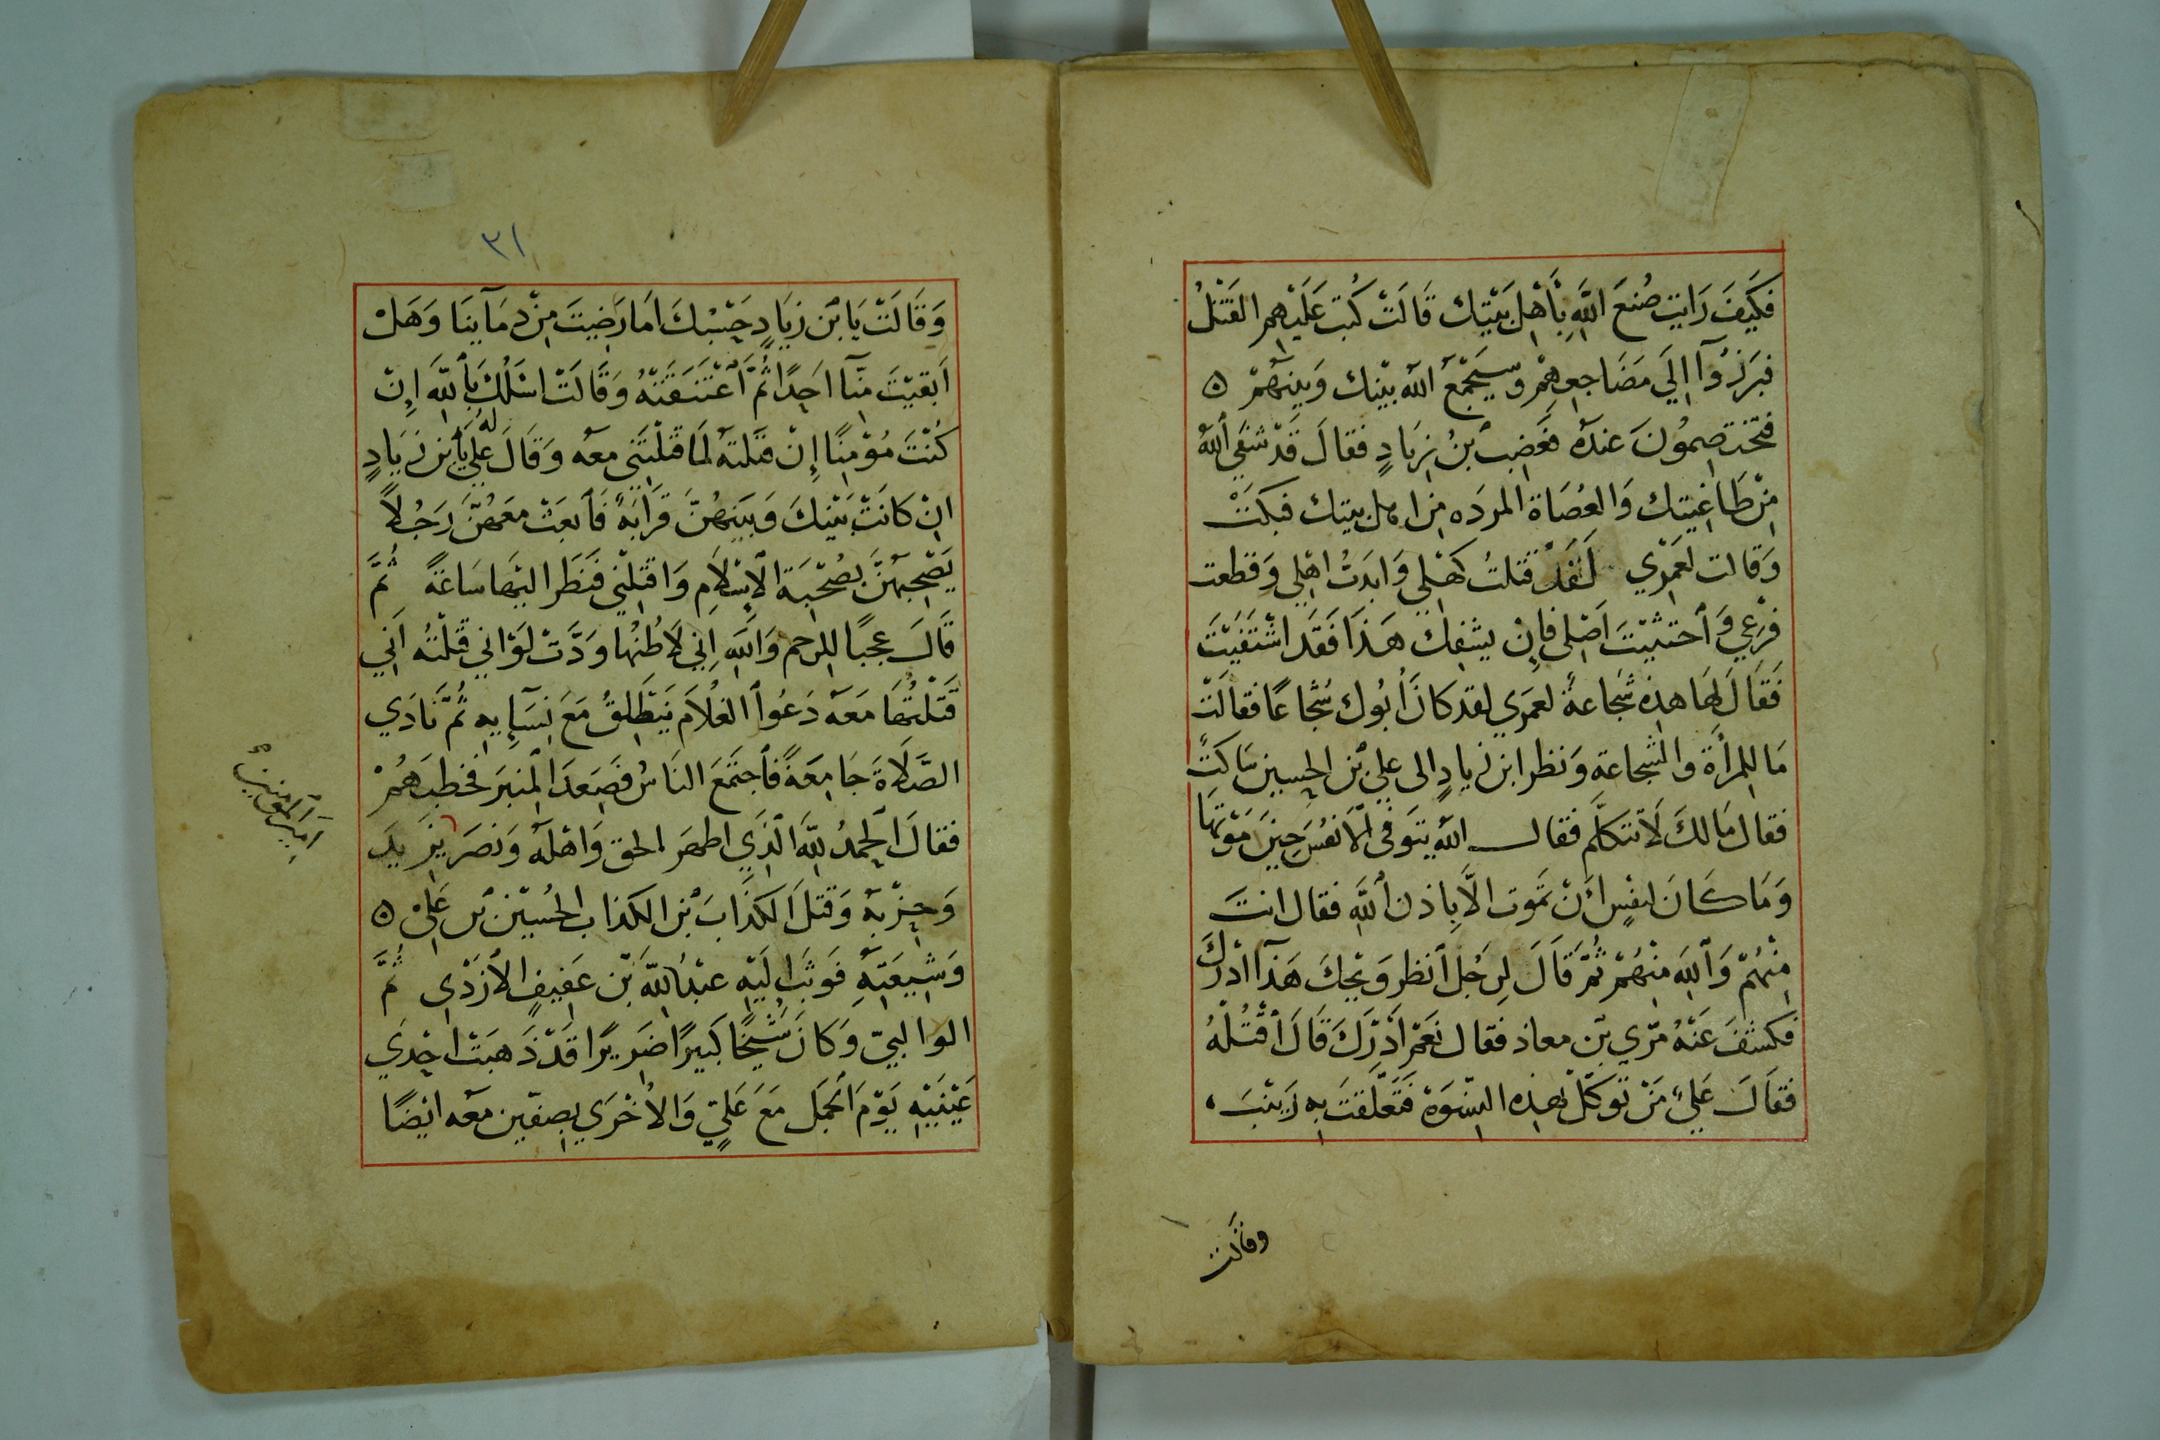 فَكَيفَ رَايت صُنعَ اللَّهِ بِأَهْلِ بَيْتِك قَالَتْ كُتِبَ عَلَيْهِمُ القَتْلُ
فبَرَزُوآ اِلَي مَضَاجِعِهِمْ وسَيَجْمَعُ اللَّه بَيْنك وَبينَهُمْ ۞
فتختصِمُونَ عندَهُ فغَضِبَ بنُ زِيَادٍ فقالَ قَدْ شَفَي اللَّهُ
مِنْ طَاغِيَتِك وَالعُصَاة المردَه مِن اهل بيتك فبكَتْ
وَقالت لعَمْرِي لَقَدْ قَتلتُ كَهْلي وَابَدتُ اهْلِي وَقطعت
فَرْعِي وَٱحتثيْتَ اَصْلِي فَاِنْ يشفِك هَذَا فَقَد اشْتَفَيْتَ
فَقَالَ لهَا هذِه شَجَاعةٌ لعَمرَي لقد كانَ اُبُوك شجَاعًا فقالَتْ
مَا للِمرأة والشجاعةِ وَنظر ابن زيادٍ الى علي بْن الحسين سَاكتًا
فقال مَا لكَ لَا تتكلَّم فقال اللَّه يتَوفى الْاَنفُسَ حِينَ مَوْتِهَا
وَمَا كَانَ لنفْسٍ اَنْ تَمُوت الَّا بِاذن ٱللَّهِ فقال انتَ
مِنْهُمْ وَٱللَّهِ مِنْهُمْ ثُمَّ قَالَ لِرَجُل ٱنظر وَيحْكَ هَذَآ اَدْرَكَ
فكشَفَ عَنْهُ مُرّي بْن معاذ فقال نَعَمْ اَدْرَكَ قَالَ ٱقْتُلْهُ
فقَالَ عَلِيٌ مَنْ تُوَكّلُ بهذِه النِسْوَةْ فَتَعَلّقتَ بِه زَيْنَبَ
وقالت
٣١
وَقَالَتْ يَا بْن زِيَادٍ حَسْبُكَ اَمَا رَضِيتَ مِنْ دِمَآينَا وَهَلْ
اَبقَيْتَ مِنَّآ اَحِدًا ثُمَّ ٱعْتَنَقَتْهُ وَقَالَتْ اسْلُكَ بِاْللَّهِ اِنْ
كُنْتَ مُؤْمِنًا اِنْ قَتَلتَه لَمَا قَتلْتَنِي معَه وَقَالَ عَلِيٌّ لَه يَا بْن زيَادٍ
اِنْ كانَتْ بَيْنَكَ وَبَيْنَهُنَّ قَرَابَهٌ فَاْبعَثْ معَهُنَّ رَجُلًا
يَصْحَبهُنَّ بصُحْبَة الْاِسْلَامِ وَاقتِلْني فنَظَر اليْهَا سَاعَةً ثُمَّ
قَالَ عجبًا للرحم وَاللَّهِ اِنِي لَاظُنُها وَدَّتْ لوْ اني قتلْتُه اَنّي
قَتَلْتُهَا مَعَه دَعُوا الغُلَامَ يَنْطَلِقُ مَعَ نِسَآاِيهِ ثُمَّ نَادَي
الصَّلَاةَ جَامِعَةً فاجتمَعَ النَاسُ فصَعدَ المِنبَرَ فخطبهُمْ
فقالَ الحَمدُ للَّهِ الَّذِي اظهَرَ الحق وَاهْلَه وَنصَرَ يزيدَ
امير المؤمنين
وَحِزْبَه وَقَتلَ الكذَّابَ بْن الكذاب الحُسيْن بْن عَلِيْ ۞
وَشِيعَتِهِ فَوثَبَ اِلَيْهِ عبْدُ اللَّهِ بْن عَفِيفٍ الاَزدْي ثُمَّ
الوالبيّ وَكانَ شَيْخًا كَبيرًا ضَرِيرًا قَدْ ذَهبَتْ اِحْدَي
عَيْنَيْهِ يَوْمَ الْجَمل مَعَ عَلِيّ وَالْاُخْرَي بِصِفّين معَه ايْضًا